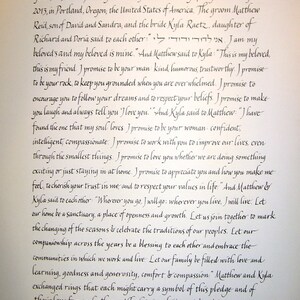 2013, in Portland, Oregon, the United States of America. The groom Matthew
Reid, son of David and Sandra, and the bride Kyla Raetz, daughter of
Richard and Doria said to each other " אני לדודי ודודי לי ". I am my
beloved's and my beloved is mine." And Matthew said to Kyla: "This is my beloved,
this is my friend. I promise to be your man - kind, humorous, trustworthy. I promise
to be your rock, to keep you grounded when you are overwhelmed. I promise to
encourage you to follow your dreams and to respect your beliefs. I promise to make
you laugh and always tell you 'I love you.'" And Kyla said to Matthew: "I have
found the one that my soul loves. I promise to be your woman - confident,
intelligent, compassionate. I promise to work with you to improve our lives, even
through the smallest things. I promise to love you whether we are doing something
exciting or just staying at home. I promise to appreciate you and how you make me
feel, to cherish your trust in me and to respect your values in life." And Matthew &
Kyla said to each other: "Wherever you go, I will go; wherever you live, I will live. Let
our home be a sanctuary, a place of openness and growth. Let us join together to mark
the changing of the seasons & celebrate the traditions of our peoples. Let our
companionship across the years be a blessing to each other and embrace the
communities in which we work and live. Let our family be filled with love and
learning, goodness and generosity, comfort & compassion." Matthew and Kyla
exchanged rings that each might carry a symbol of this pledge and of